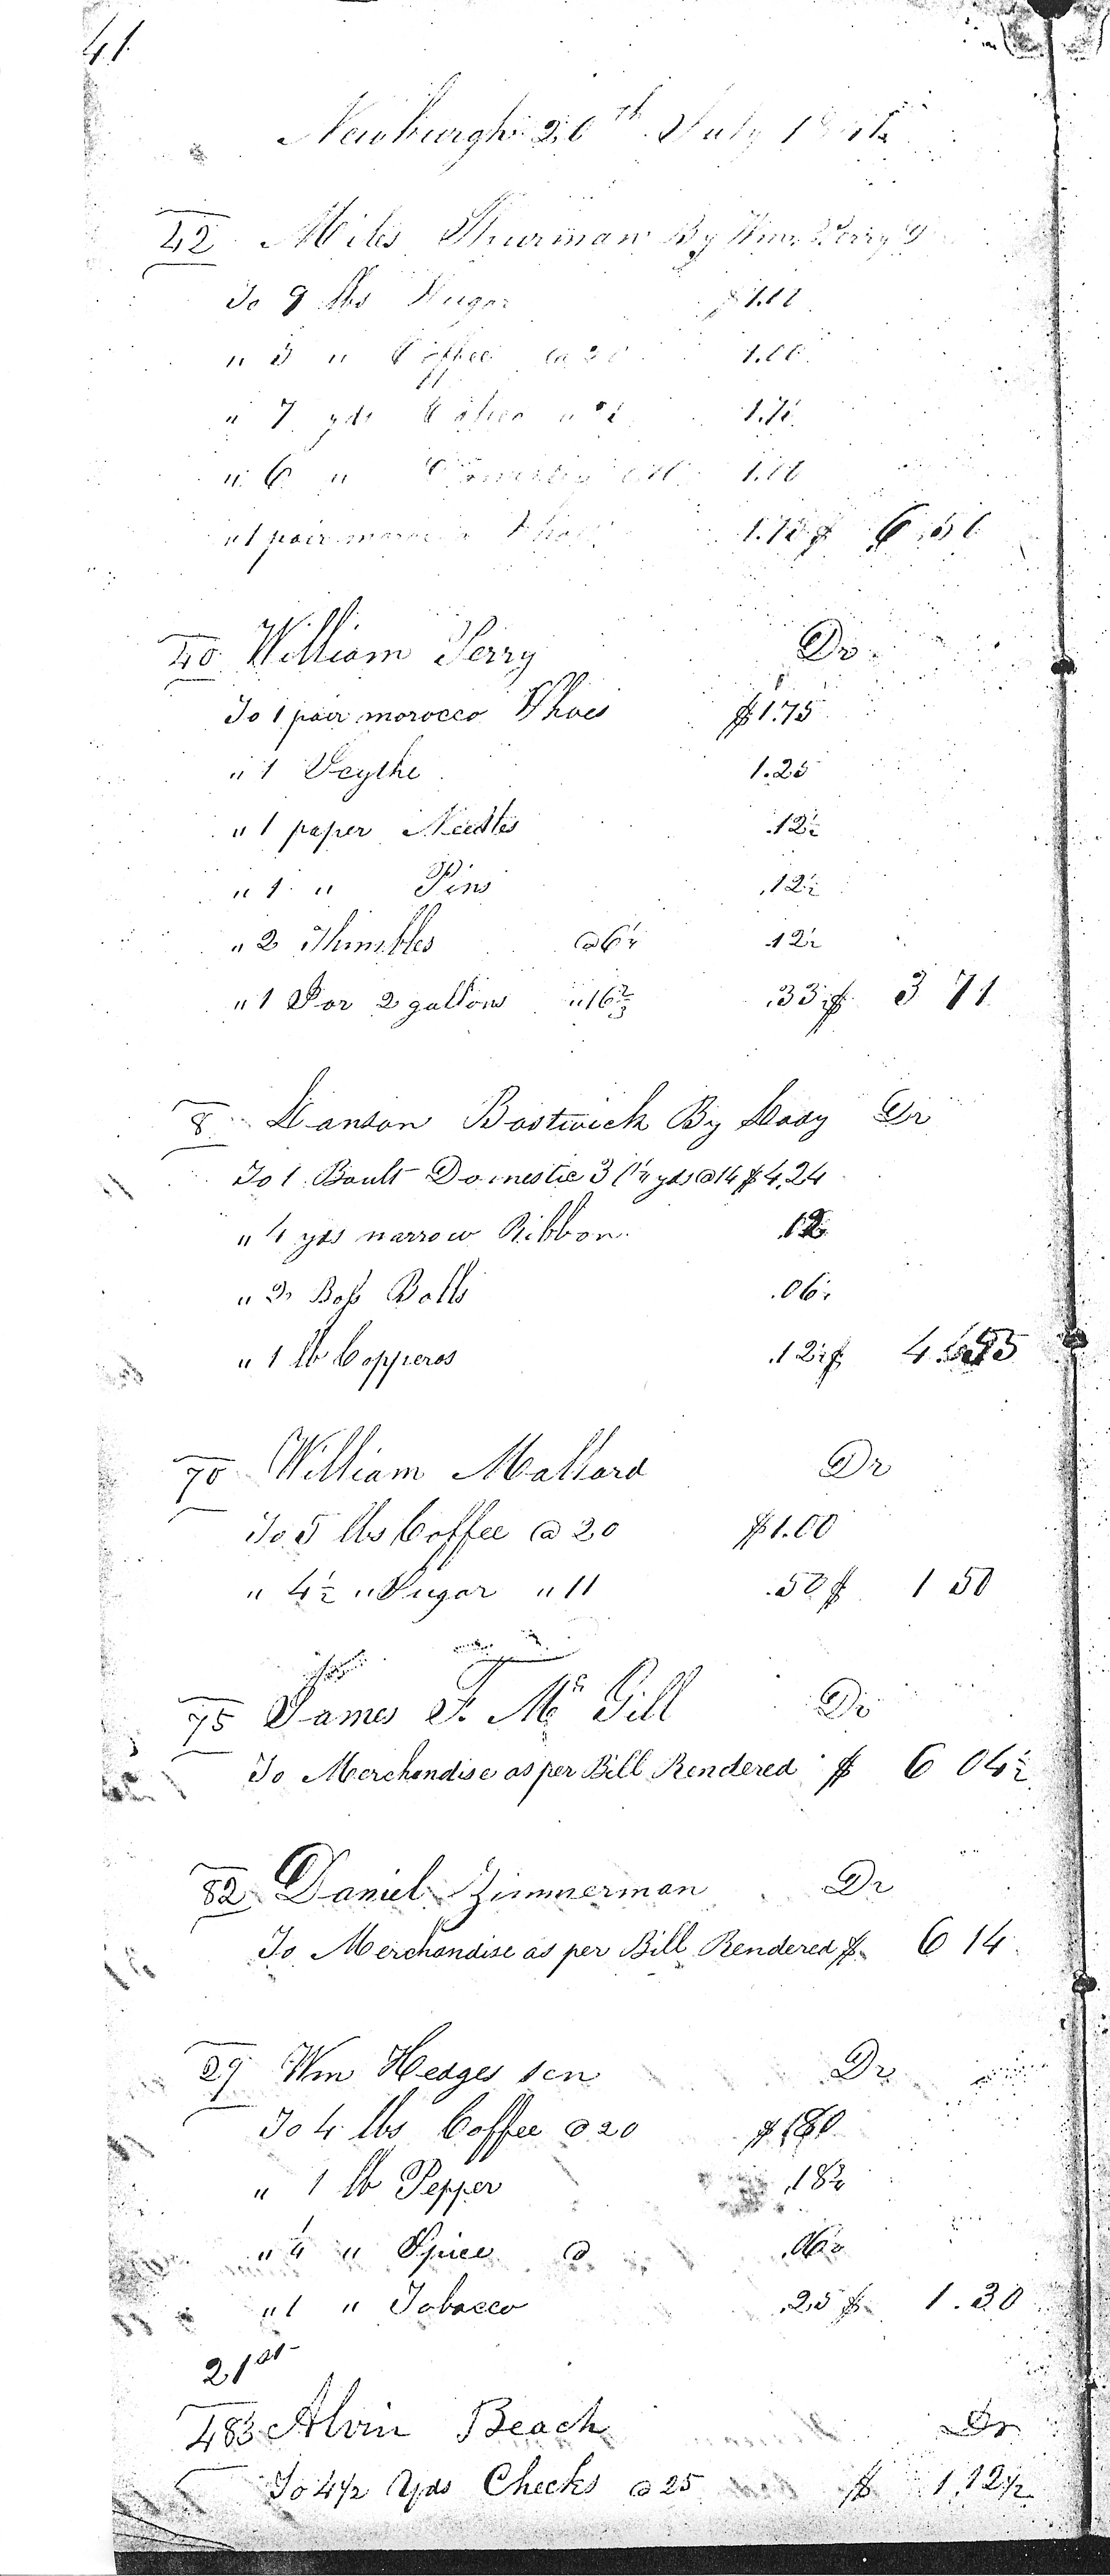 41
Newburgh 20th July
42 Miles Thurman By Wm Perry
To 9 lbs Sugar $1.
" 5 " Coffee @ 20 1.00
" 7 yds Calico 1.7
" 6 " 1.
" 1 pair morocco Shoes 1.75 $ 6 5
40 William Perry Dr
To 1 pair morocco Shoes $1.75
" 1 Scythe 1.25
" 1 paper Needles .12½
" 1 " Pins .12½
" 2 Thimbles @ 6¼ 12½
" 1 Jar 2 gallons " 16⅔ .33 $ 3 71
8 Lanson Bostwick By Lady Dr
To 1 Boult Domestic 3 yds @ 14 $4.24
" 4 yds narrow Ribbon .12
" 2 Boss Balls .06¼
" 1 lb Copperas .12½ $ 4.55
70 William Mallard Dr
To 5 lbs Coffee @ 20 $1.00
" 4½ " Sugar " 11 .50 $ 1 50
75 James F. Mc Gill Dr
To Merchandise as per Bill Rendered $ 6 04½
82 Daniel Zimmerman Dr
To Merchandise as per Bill Rendered $ 6 14
29 Wm Hedges sen Dr
To 4 lbs Coffee @ 20 $ .80
" 1 lb Pepper .18¾
" ¼ " Spice @ .06¼
" 1 " Tobacco .25 $ 1.30
21st
483 Alvin Beach Dr
To 4½ Yds Checks @ 25 $ 1.12½